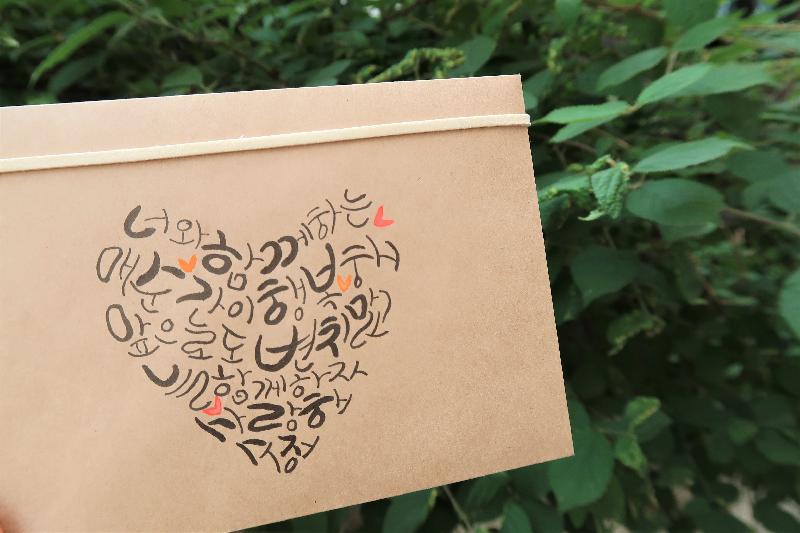 너와 함께하는
매순간이 행복해
앞으로도 변치말고
늘 함께하자
사랑해